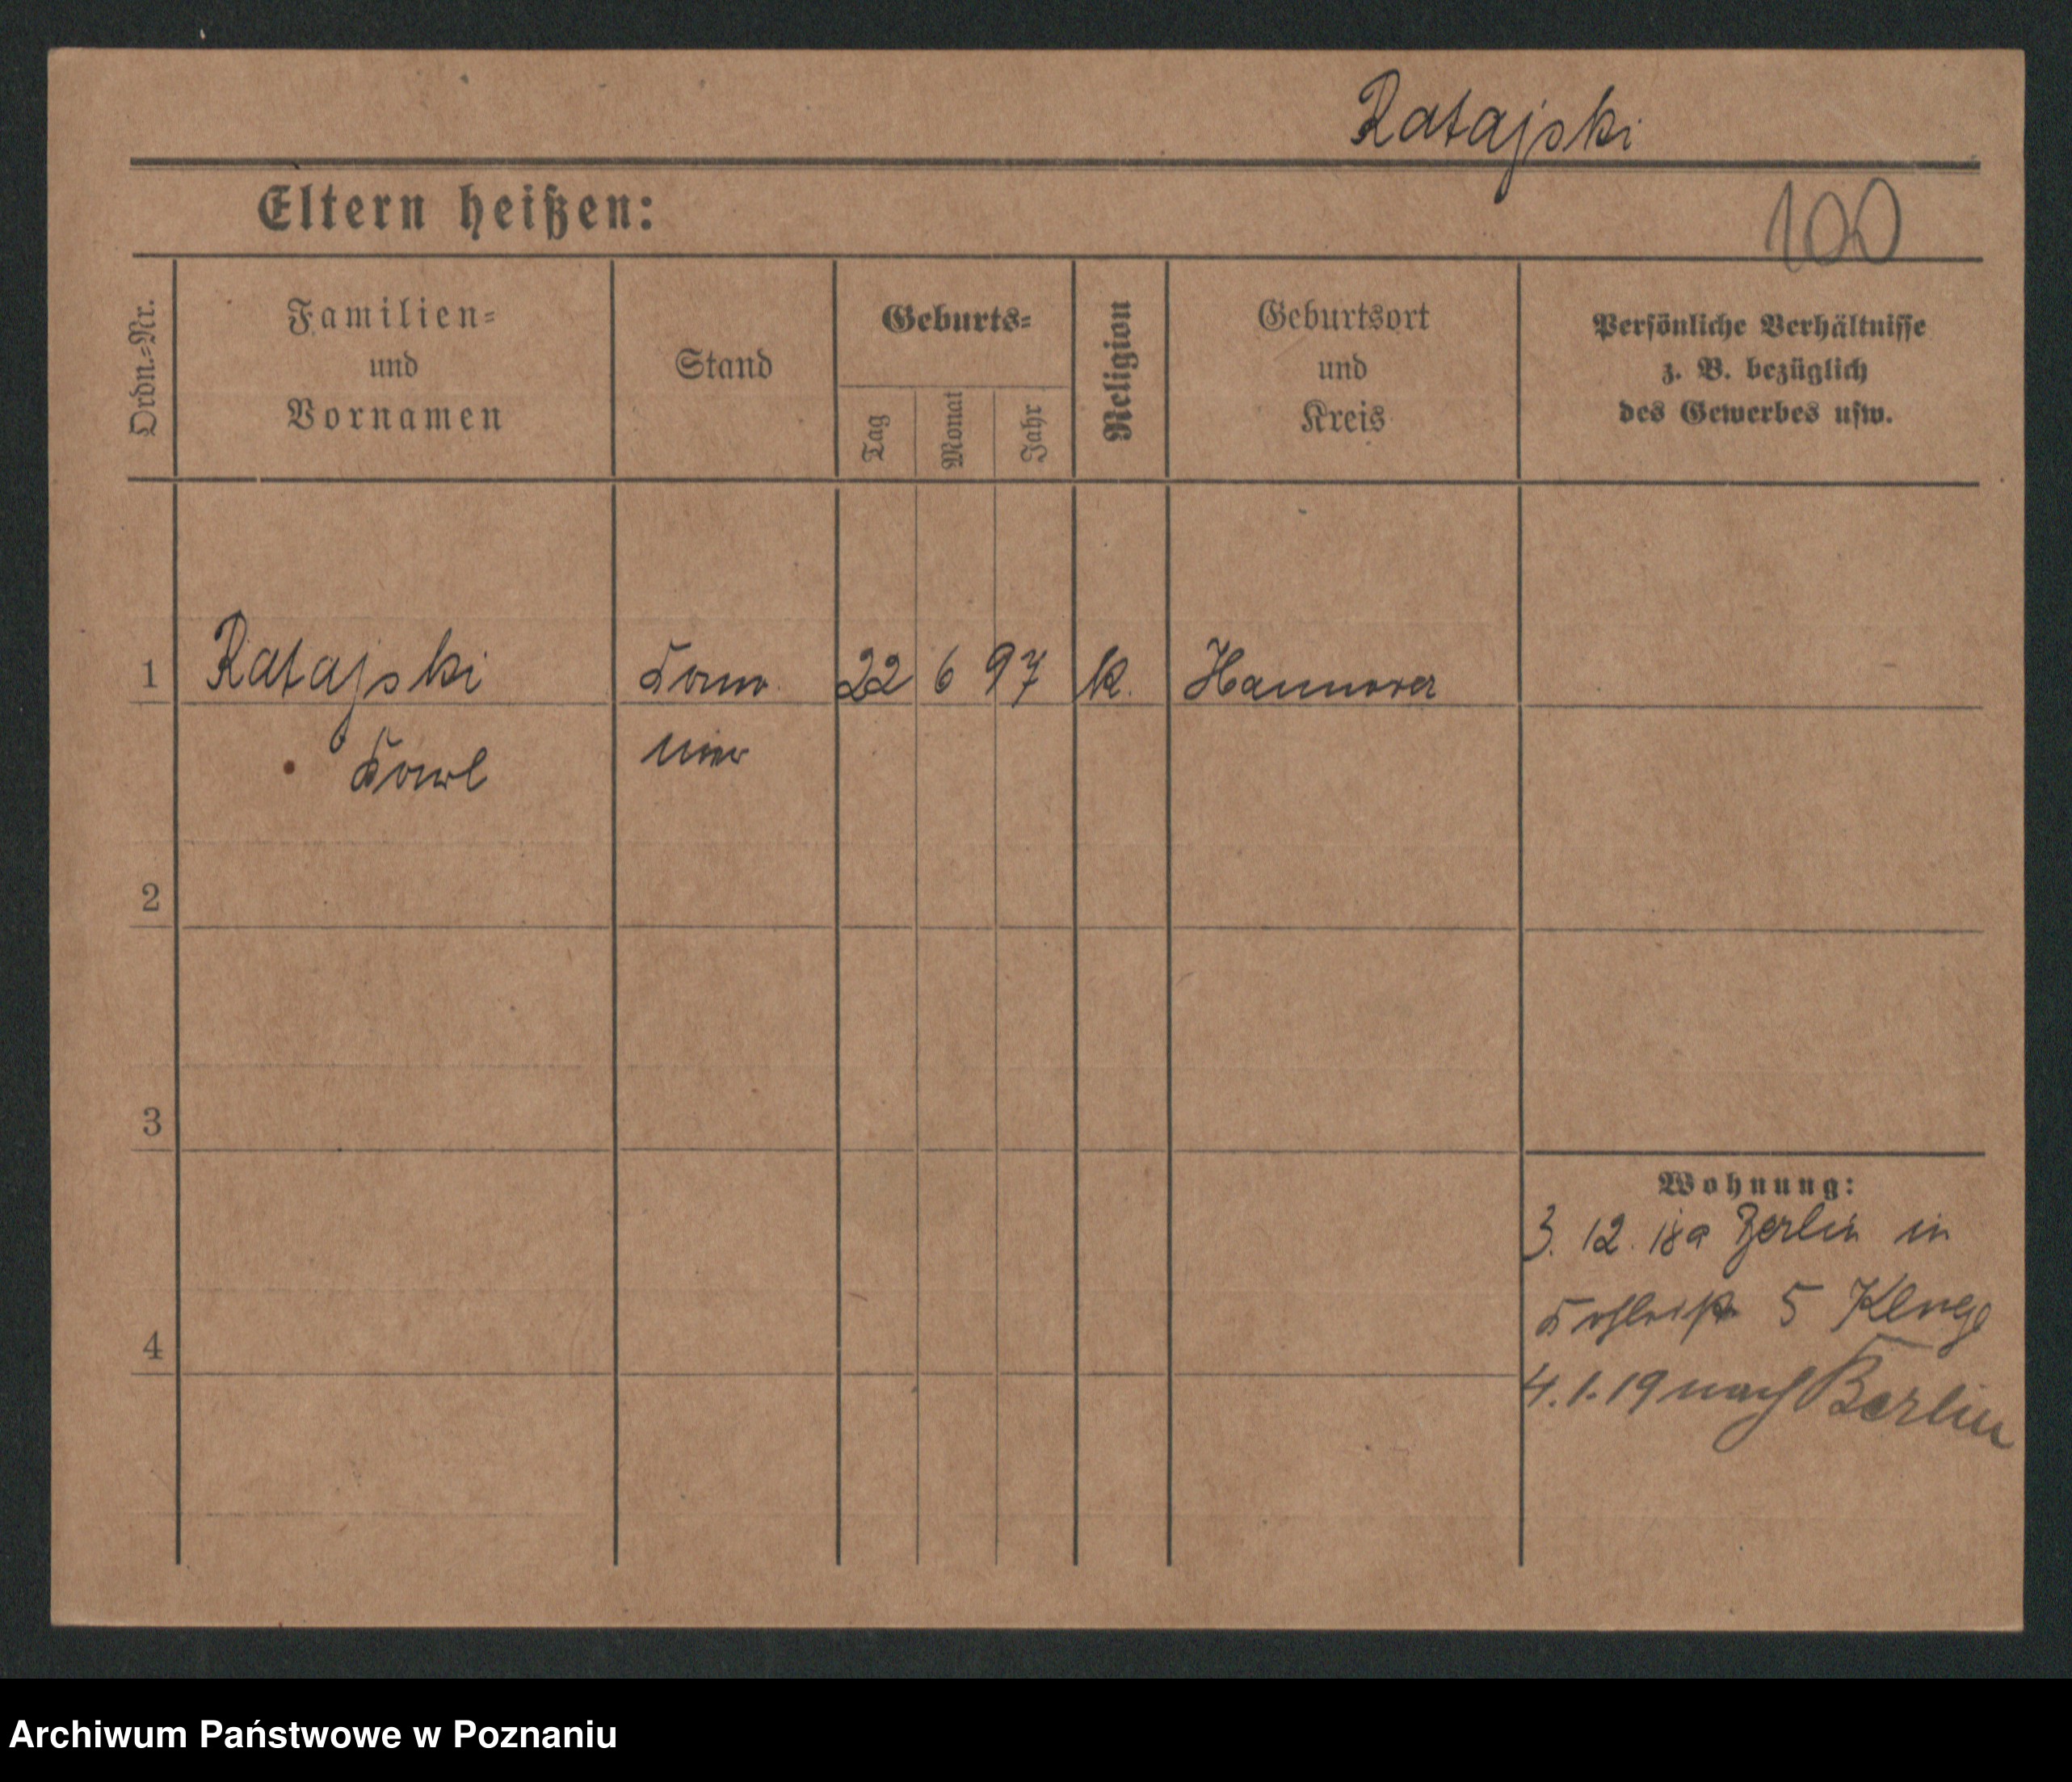 Ratajski
Eltern heißen:
100
Ordn.-Nr.
Familien-
und
Vornamen
Stand
Geburts-
Tag
Monat
Jahr
Religion
Geburtsort
und
Kreis
Persönliche Verhältnisse
z. B. bezüglich
des Gewerbes usw.
1 Ratajski 22 6 97 k. Hannover
Karl
2
3
Wohnung:
3. 12. 18 a Berlin in
4
5
4. 1. 19 nach Berlin
Archiwum Państwowe w Poznaniu